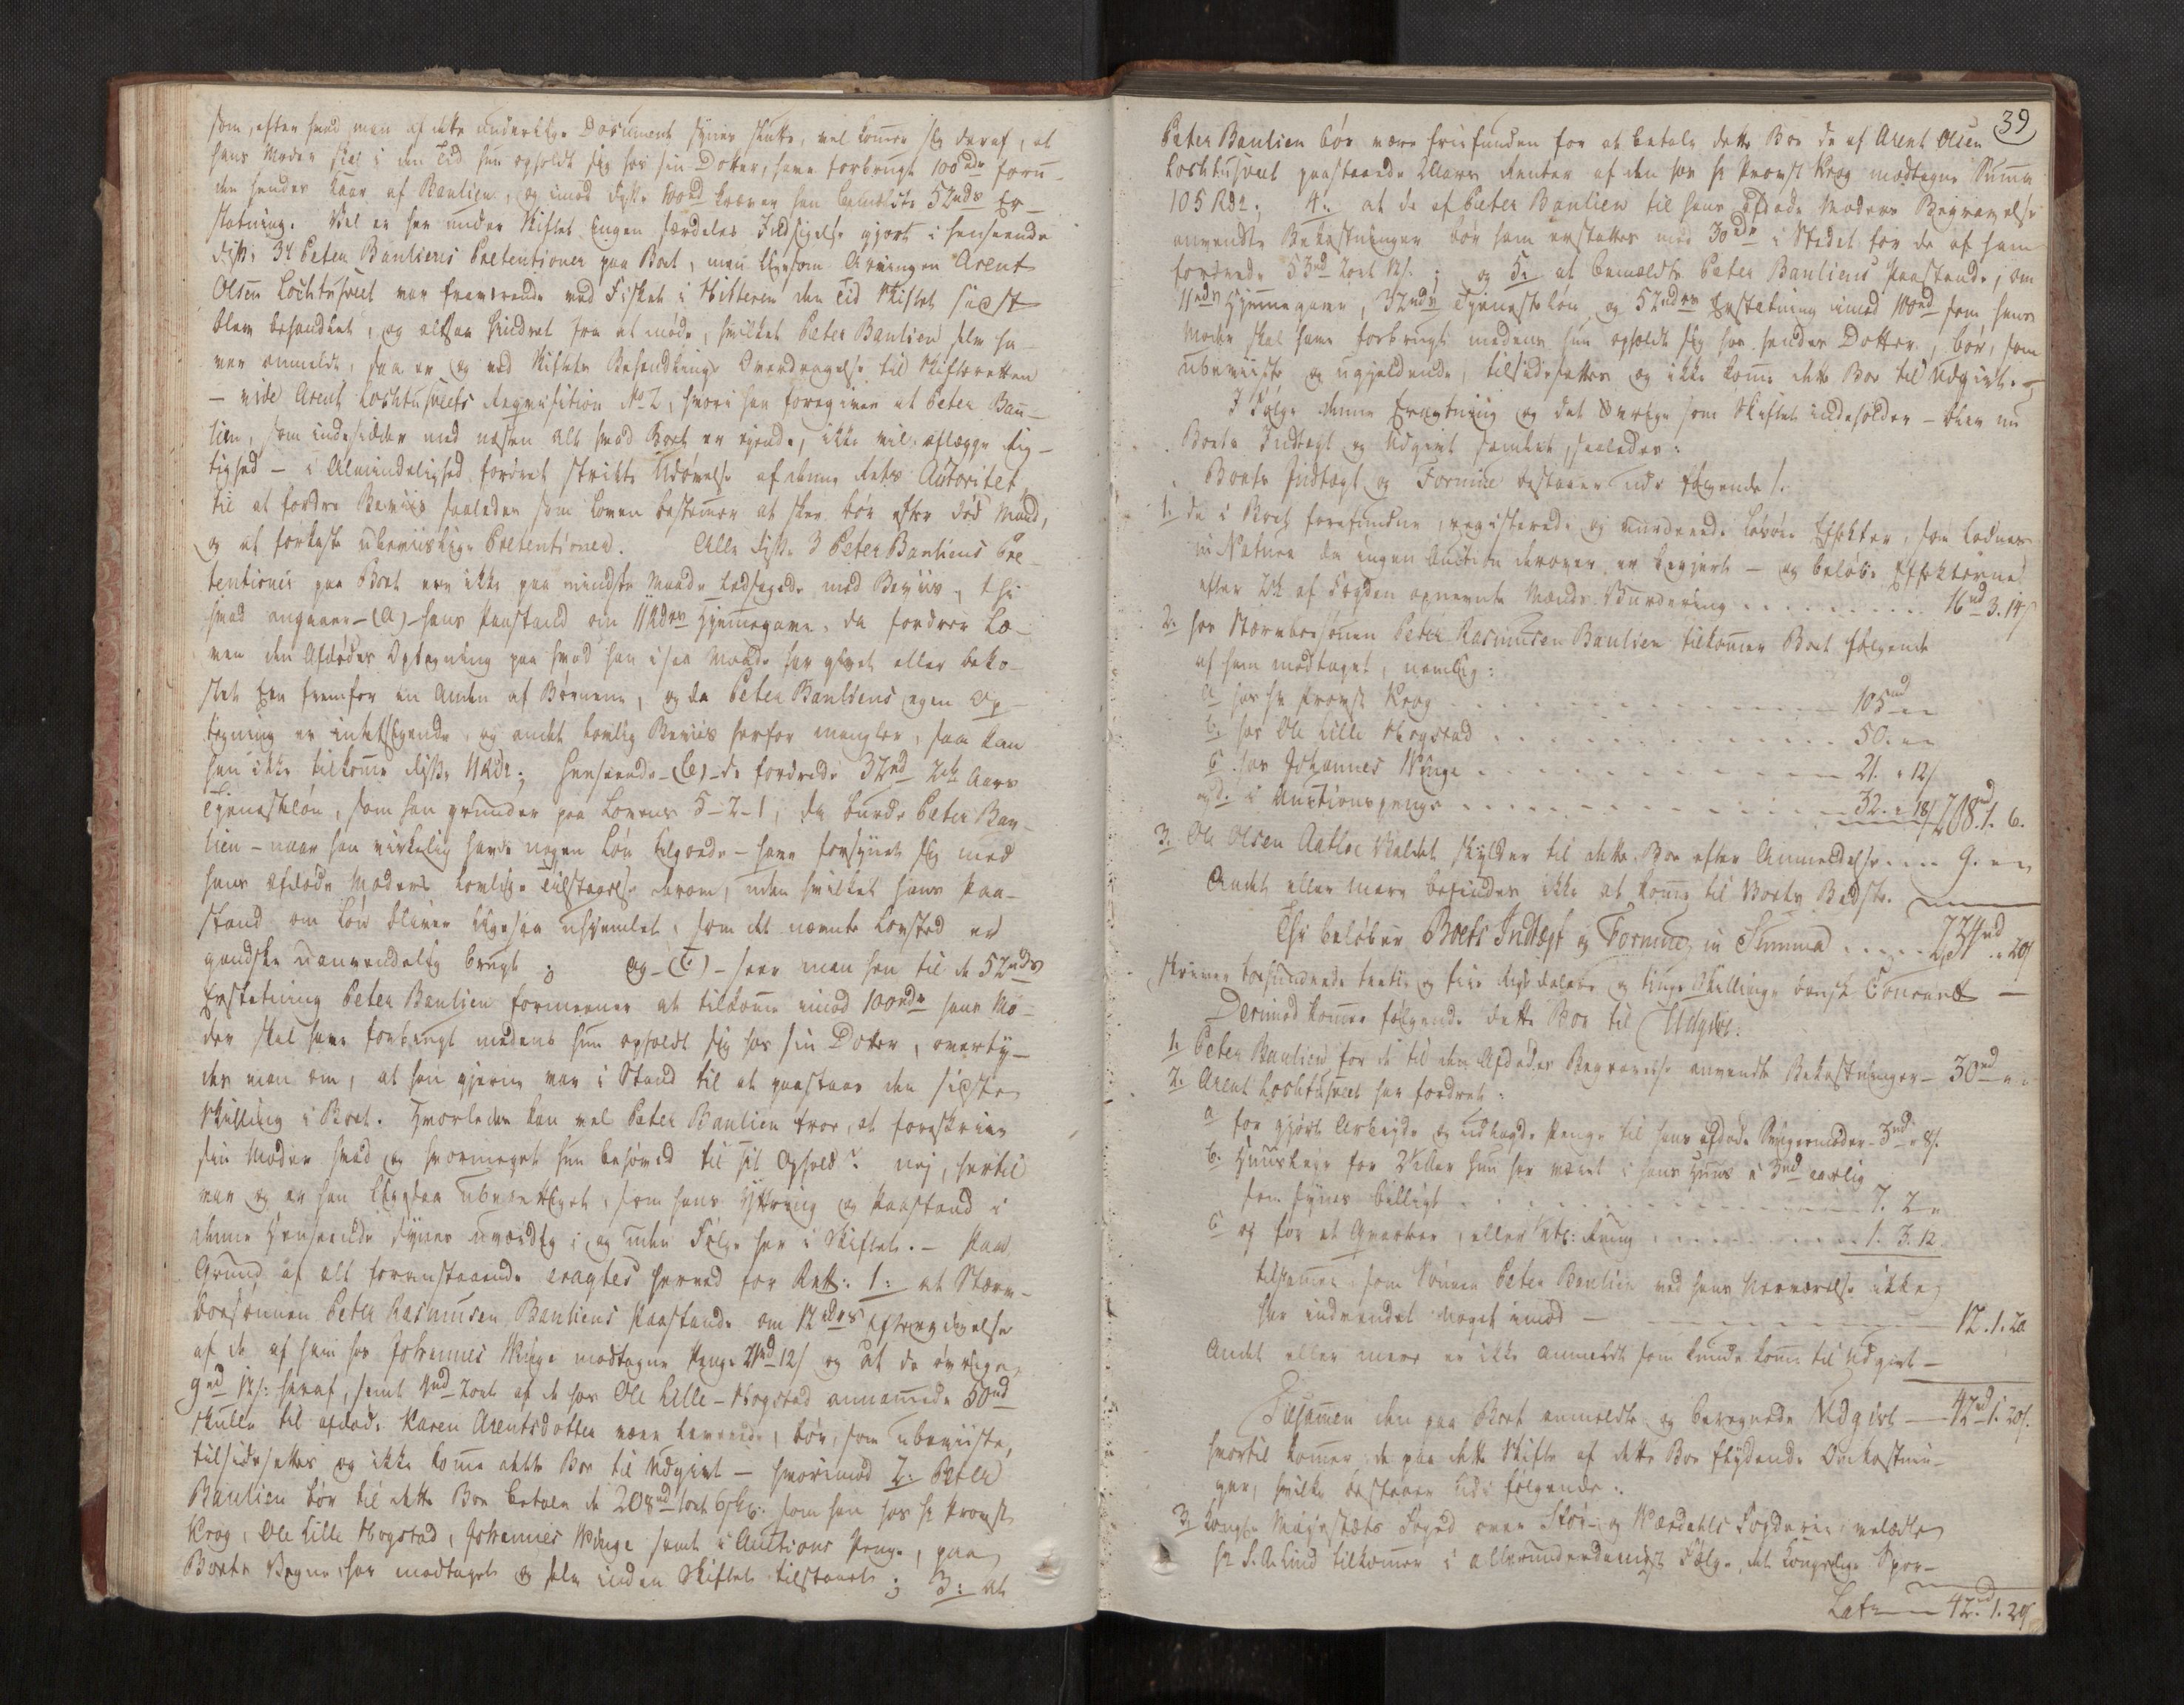 som, efter hvad man af dette underlige Document synes slutte, vel komer sig deraf, at
hans Moder skal i den Tid hun opholdt sig hos sin Dotter, have forbrugt 100rdr foru-
den hendes Kaar af Baulien, og imod disse 100rd kræver han bemeldte 52rdr Er-
statning. Vel er her under Skiftet ingen særdeles Indsigelse gjort i henseende
disse 3de Peter Bauliens Pretentioner paa Boet, men ligesom Arvingen Arent
Olsen Lochtushuet var fraværende ved Fisket i Hitteren den Tid Skiftet sidst
blev behandlet, og altsaa hindret fra at møde, hvilket Peter Baulien selv ha-
ver anmeldt, saa er og ved Skiftets Behandlings Overdragelse til Skifteretten
- vide Arent Lochtushuets Reqvisition No 2, hvori han foregiver at Peter Bau-
lien, som indesidder med næsten alt hvad Boet er eyende, ikke vil aflægge Rig-
tighed - i Almindelighed fordret strikte Udøvelse af denne Rets Autoritet,
til at fordre Beviis saaledes som Loven bestemer at skee bør efter død Mand,
og at forkaste ubeviislige Pretentioner. Alle disse 3 Peter Bauliens Pre-
tentioner paa Boet ere ikke paa mindste Maade ledsagede med Beviis, thi
hvad angaaer - (a) - hans Paastand om 11Rdrs Hjemmegave, da fordrer Lo-
ven den Afdødes Optegning paa hvad han i saa Maade har givet eller beko-
stet Een fremfor en Anden af Børnene, og da Peter Bauliens egen Op-
tegning er intetsigende, og andet lovlig Beviis herfor mangler, saa kan
han ikke tilkomme disse 11Rdr; Henseende - (b) - de fordrede 32rd 2de Aars
Tjenesteløn, som han grunder paa Lovens 5-2-1, da burde Peter Bau-
lien - naar han virkelig havde nogen Løn tilgode - have forsynet sig med
hans afdøde Moders lovlige Tilstaaelse derom, uden hvilket hans Paa-
stand om Løn bliver ligesaa uhjemlet, som det nævnte Lovsted er
gandske uanvendelig brugt; og - (c) - seer man hen til de 52rdrs
Erstatning Peter Baulien formeener at tilkomme imod 100rdr hans Mo-
der skal have forbrugt medens hun opholdt sig hos sin Dotter, overty-
des man om, at han gjerne var i Stand til at paastaae den sidste
Skilling i Boet. Hvorledes kan vel Peter Baulien troe, at foreskrive
sin Moder hvad og hvormeget hun behøved til sit Ophold? nej, hertil
var og er han ligesaa uberettiget, som hans Yttring og Paastand i
denne Henseende synes uværdig; og uden Følge her i Skiftet. - Paa
Grund af alt foranstaaende eragtes herved for Ret: 1: at Stærv-
boesønnen Peter Rasmusen Bauliens Paastande om 12rdrs Eftergivelse
af de af ham hos Johannes Winge modtagne Penge 21rd 12s og at de øvrige
9rd 12s: heraf, samt 4rd 2ort af de hos Ole Lille-Mogstad annamede 50rd
skulle til afdøde Karen Arentsdotter være leverede, bør, som ubeviiste,
tilsidesættes og ikke komme dette Boe til Udgivt - hvorimod 2: Peter
Baulien bør til dette Boe betale de 208rd 1ort 6sk: som han hos Hr Provst
Krog, Ole Lille Mogstad, Johannes Winge samt i Auctions Penge, paa
Boets Vegne har modtaget og selv under Skiftet tilstaaet; 3: at
39
Peter Baulien bør være frifunden for at betale dette Boe de af Arent Olsen
Lochtushuet paastaaede Aars Renter af den hos Hr Provst Krog modtagne Summa
105 Rdr; 4: at de af Peter Baulien til hans afdøde Moders Begravelse
anvendte Bekostninger bør ham erstattes med 30rdr i Stedet for de af ham
fordrede 53rd 2ort 12s.; og 5: at bemeldte Peter Bauliens Paastande, om
11rdrs Hjemmegave, 32rdrs Tjenesteløn og 52rdrs Erstatning imod 100rd som hans
Moder skal have forbrugt medens hun opholdt sig hos hendes Dotter, bør, som
ubeviiste og ugjeldende, tilsidesættes og ikke komme dette Boe til Udgivt. -
I Følge denne Eragtning og det Øvrige som Skiftet indeholder - blev nu
Boets Indtægt og Udgivt samlet, saaledes:
Boets Indtægt og Formue bestaaer udi følgende /.
1. de i Boet forefundne, registerede og vurderede løsøre Effekter, som lodnes
in Natura da ingen Auction derover er begjert - og beløbe Effekterne
efter 2de af Fogden opnevnte Mænds Vurdering . . . 16rd 3. 14s
2. hos Stærvboesønnen Peter Rasmusen Baulien tilkommer Boet følgende
af ham modtaget, nemlig:
a hos Hr Provst Krog . . . 105rd " "
b. hos Ole Lille Mogstad . . . 50. " "
c hos Johannes Winge . . . 21. " 12s
og d. i Auctionspenge . . . 32. " 18s 208rd. 1. 6.
3. Ole Olsen Aatloe Waldet skylder til dette Boe efter Anmeldelse . . . 9. " "
Andet eller mere befindes ikke at komme til Boets Bedste.
Thi beløber Boets Indtægt og Formue in Summa . . . 234rd " 20s
skriver toehundrede trætive og fire Rigsdalere og tyve Skilling dansk Courant -
Derimod kommer følgende dette Boe til Udgivt:
1. Peter Baulien for de til den Afdødes Begravelse anvendte Bekostninger - 30rd " "
2. Arent Lochtushuet har fordret:
a for gjort Arbeyde og udlagde Penge til hans afdøde Svigermoder - 3rd " 8s.
b. Huusleye for Tiden hun har været i hans Huus a 3rd aarlig
som synes billigt . . . 7. 2 "
c og for et Qvarter, . . . 1. 3. 12
tilsammen som Sønnen Peter Baulien ved hans Nærværelse ikke
har indvendet noget imod - . . . 12. 1. 20
Andet eller mere er ikke anmeldt som kunde komme til Udgivt -
Tilsammen den paa Boet anmeldte og beregnede Udgivt - 42rd 1. 20s.
hvortil kommer de paa dette Skifte af dette Boe flydende Omkostnin-
ger, hvilke bestaaer udi følgende:
3. Kongl. Majestæts Foged over Stør- og Wærdahls Fogderie, velædle
Hr S. A. Lind tilkommer i allerunderdanigst Følge det kongelige Spor-
Lat. 42rd. 1. 20s